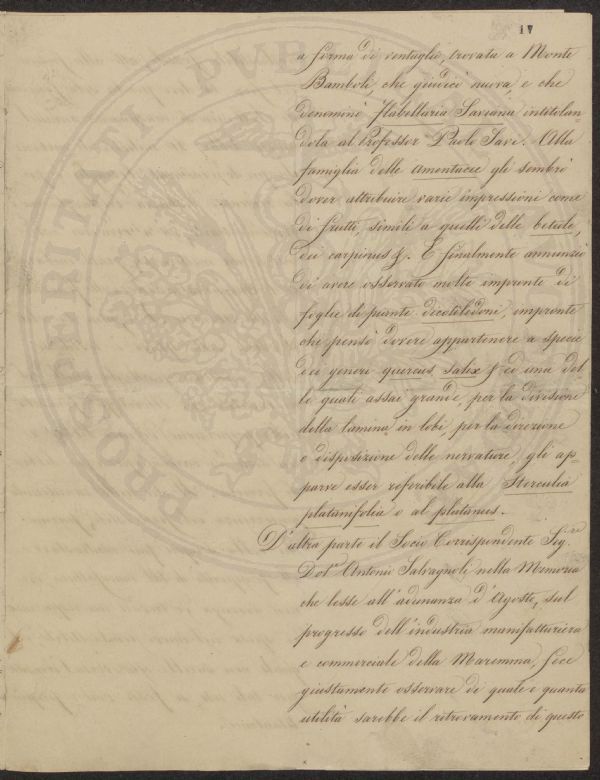 17
a forma di ventaglio, trovata a Monte
Bamboli, che giudicò nuova, e che
denominò Flabellaria Saviana intitolan-
dola al Professor Paolo Savi. Alla
famiglia delle amentacee gli sembrò
dover attribuire varie impressioni come
di frutti, simili a quelli delle betule,
dei carpinus &. E finalmente annunziò
di avere osservato molte impronte di
foglie di piante dicotiledoni, impronte
che pensò dovere appartenere a specie
dei generi quercus, salix & ed una del-
le quali assai grande, per la divisione
della lamina in lobi, per la direzione
e disposizione delle nervature, gli ap-
parve esser referibile alla Sterculia
platanifolia o al platanus.
D'altra parte il Socio Corrispondente Sig.re
Dot.r Antonio Salvagnoli nella Memoria
che lesse all'adunanza d'Agosto, sul
progresso dell'industria manifatturiera
e commerciale della Maremma, fece
giustamente osservare di quale e quanta
utilità sarebbe il ritrovamento di questo
PROSPERITATI PVB